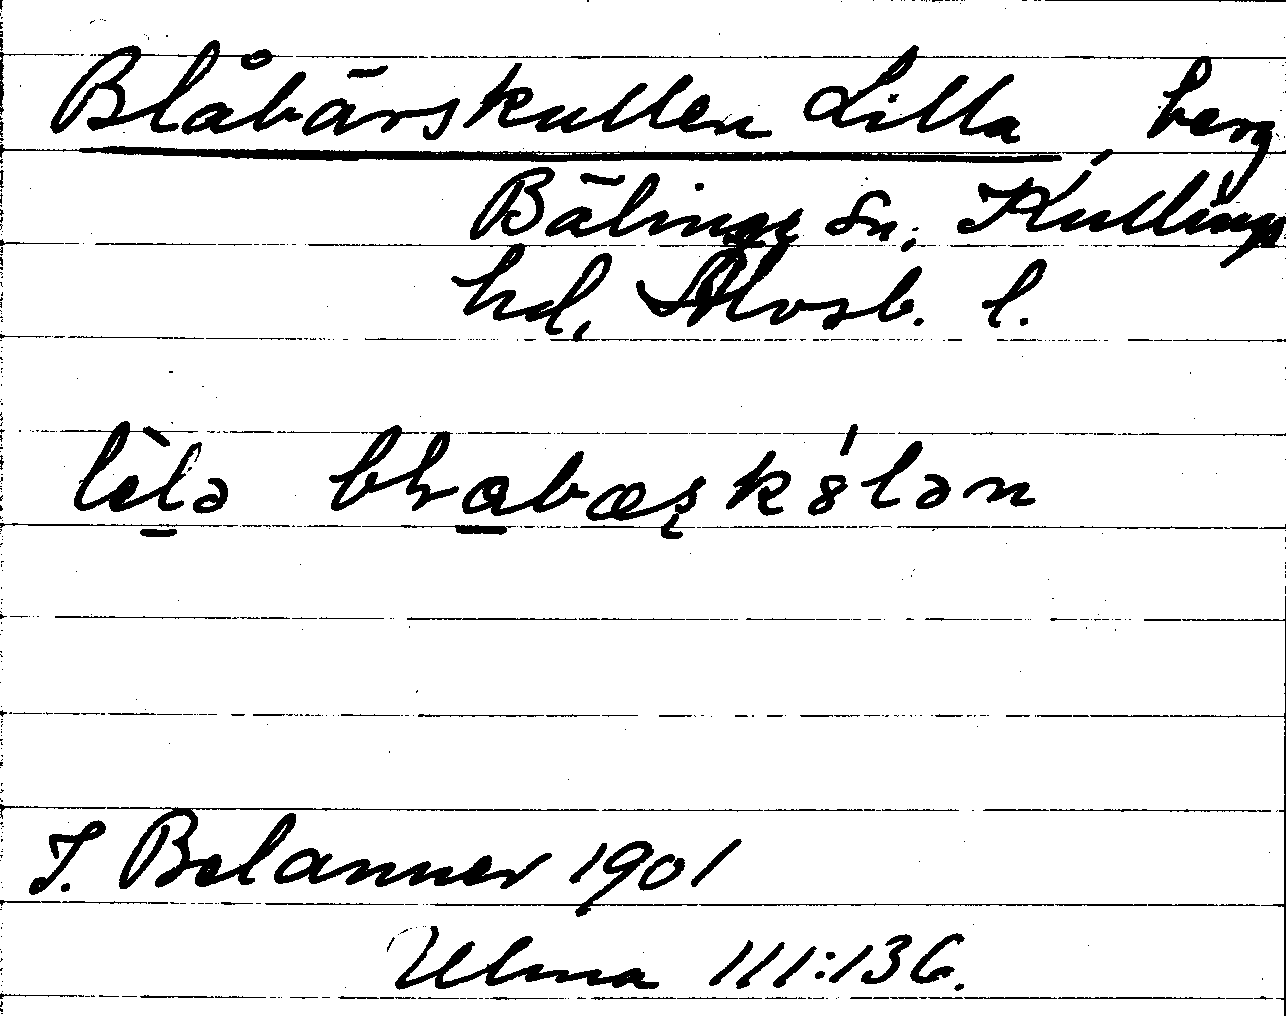 Blåbärskullen Lilla, berg
Bälinge sn, Kullings
hd, Älvsb. l.
lìla bɫabæʂkálən
J. Belanner 1901
Ulma 111:136.